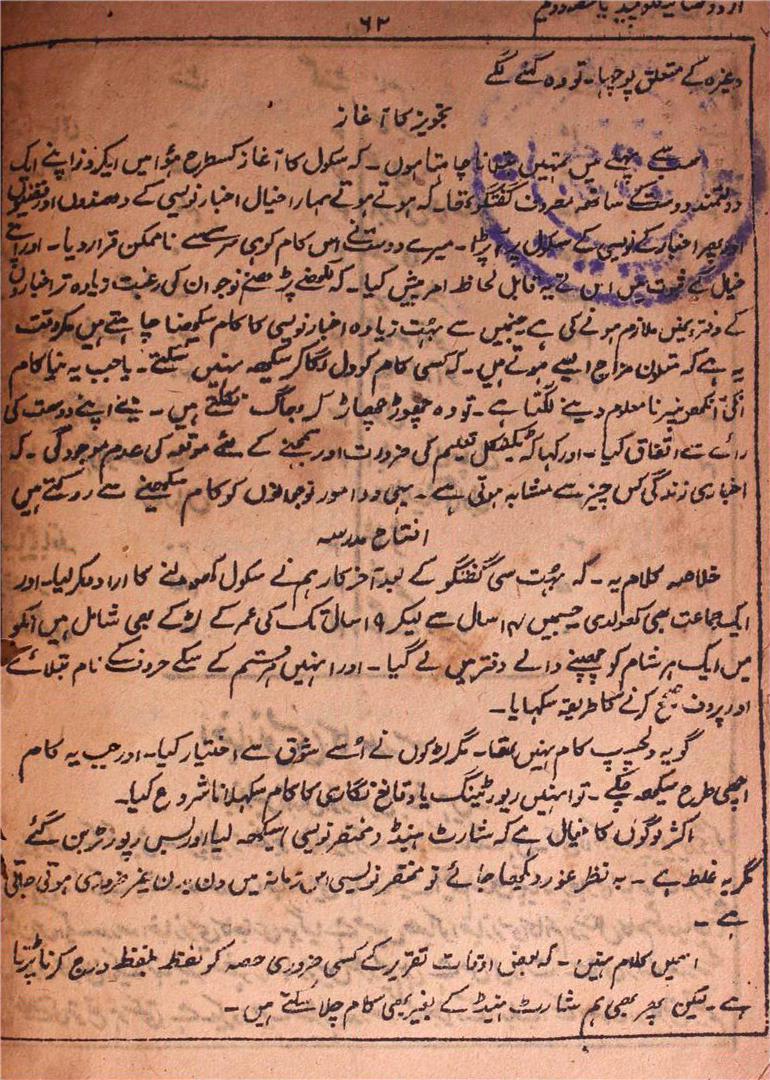 ۶۲
وغیرہ کے متعلق پوچھا۔ تو وہ کہنے لگے
تجویز کا آغاز
سب سے پہلے میں تمہیں بتانا چاہتا ہوں۔ کہ سکول کا آغاز کسطرح ہؤا میں ایکروز اپنے ایک
دولتمند دوست کے ساتھ مصروف گفتگو تھا۔ کہ ہوتے ہوتے ہمارا خیال اخبار نویسی کے دھندوں اور
اور پھر اخبار نویسی کے سکول پر آ پڑا۔ میرے دوست نے اس کام کو ہی سرے سے ناممکن قرار دیا۔ اور اپنے
خیال کے ثبوت میں اس نے یہ قابل لحاظ امر پیش کیا۔ کہ لکھنے پڑھنے نوجوان کی رغبت زیادہ تر اخباروں
کے دفتر میں ملازم ہونے کی ہے جنمیں سے بہت زیادہ اخبار نویسی کا کام سیکھنا چاہتے ہیں مگر دقت
یہ ہے کہ متلون مزاج ایسے ہوتے ہیں۔ کہ کسی کام کو دل لگا کر سیکھ نہیں سکتے۔ یا جب یہ نیا کام
انکی آنکھوں پر نا معلوم دینے لگتا ہے۔ تو وہ چھوڑ چھاڑ کر بھاگ نکلتے ہیں۔ مینے اپنے دوست کی
رائے سے اتفاق کیا۔ اور کہا کہ ٹیکنیکل تعلیم کی ضرورت اور سمجھنے کے لئے موقعہ کی عدم موجودگی۔ کہ
اخباری زندگی کس چیز سے مشابہ ہوتی ہے۔ یہی دو امور نوجوانوں کو کام سیکھنے سے روکتے ہیں
افتتاح مدرسہ
خلاصہ کلام یہ۔ کہ بہت سی گفتگو کے بعد آخر کار ہم نے سکول کھولنے کا ارادہ کر لیا۔ اور
ایک جماعت بھی کھولدی جسمیں ۱۴ سال سے لیکر ۱۹ سال تک کی عمر کے لڑکے بھی شامل ہیں انکو
میں ایک ہر شام کو چھپنے والے دفتر میں لے گیا۔ اور انہیں ہر قسم کے سکے حروف کے نام بتلائے
اور پروف صحیح کرنے کا طریقہ سکھایا۔
گو یہ دلچسپ کام نہیں تھا۔ مگر لڑکوں نے اُسے شوق سے اختیار کیا۔ اور جب یہ کام
اچھی طرح سیکھ چکے۔ تو انہیں رپورٹینگ یا وقائع نگاری کا کام سکھلانا شروع کیا۔
اکثر لوگوں کا خیال ہے کہ شارٹ ہینڈ دمختصر نویسی) سیکھ لیا اور بس رپورٹر بن گئے
مگر یہ غلط ہے۔ بہ نظر غور دیکھا جائے تو مختصر نویسی اس زمانہ میں دن بدن غیر ضروری ہوتی جاتی
ہے۔
اسمیں کلام نہیں۔ کہ بعض اوقات تقریر کے کسی ضروری حصہ کو لفظ بلفظ درج کرنا پڑتا
ہے۔ لیکن پھر بھی ہم شارٹ ہینڈ کے بغیر بھی کام چلا سکتے ہیں۔